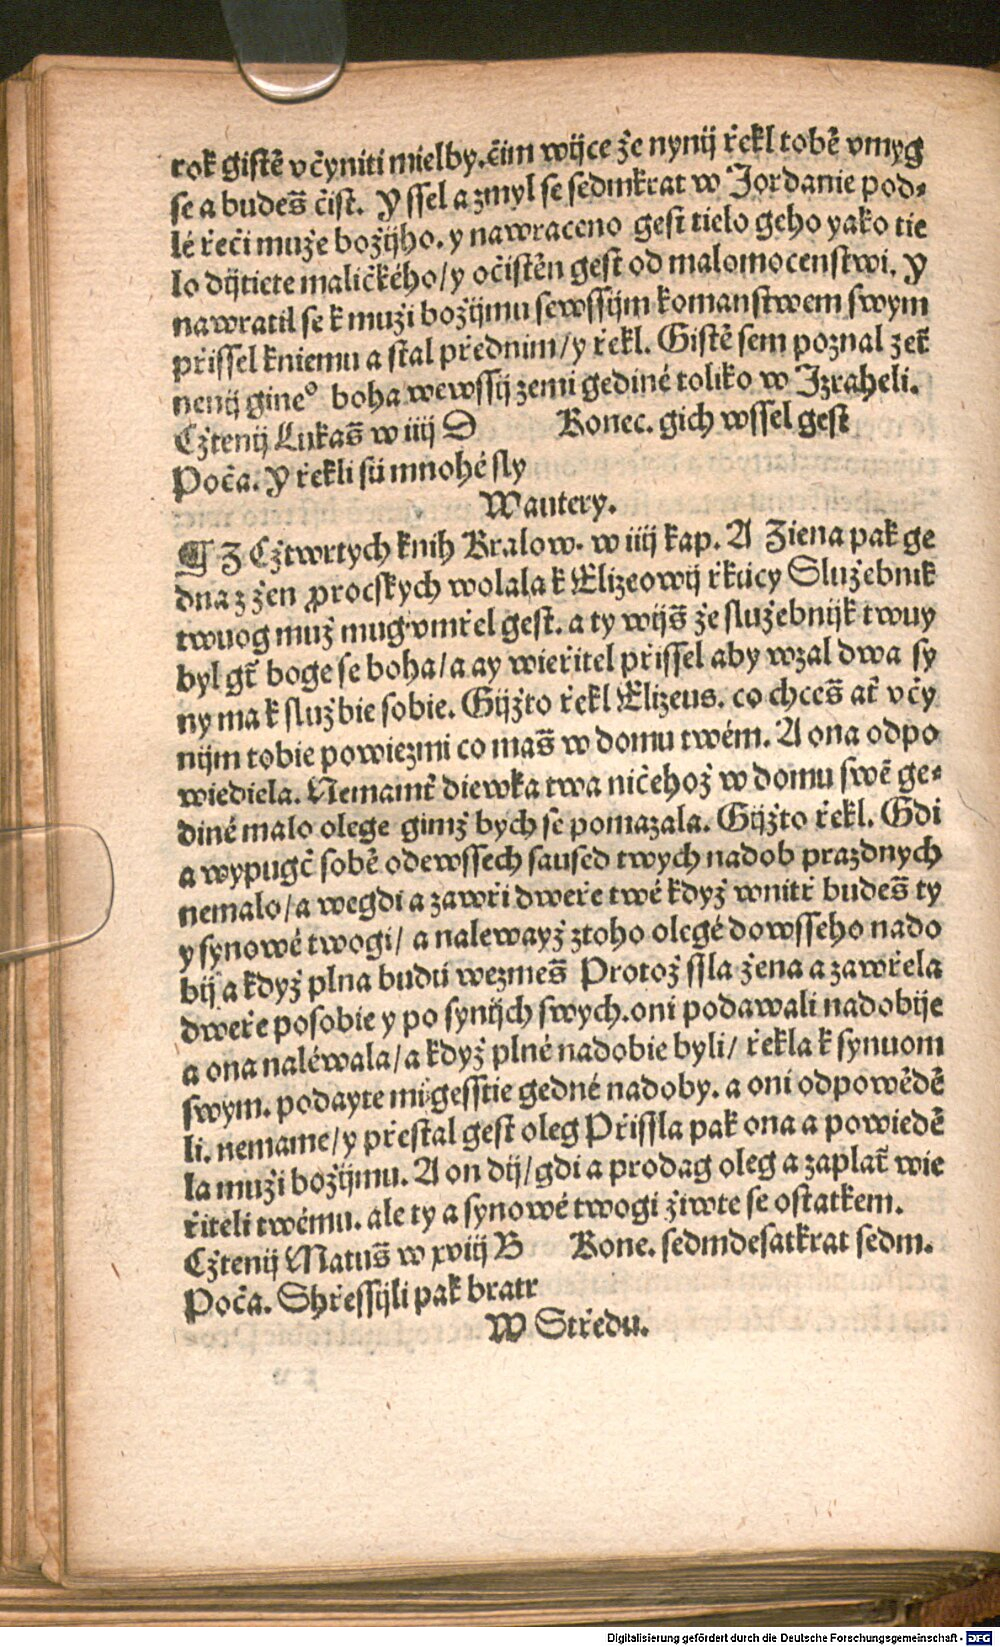 rok gistē včyniti mielby. čim wijce že nynij řekl tobē vmyg
se a budes̄ čist. Y ssel a zmyl se sedmkrat w Jordanie pod⸗
lé řeči muže božijho. y nawraceno gest tielo geho yako tie
lo dijtiete maličkého/ y očistēn gest od malomocenstwi. Y
nawratil se k muži božijmu sewssijm komanstwem swym
přissel kniemu a stal přednim/ y řekl. Gistē sem poznal zet̄
nenij gine° boha wewssij zemi gediné toliko w Jzraheli.
Cžtenij Lukas̄ w iiij D Konec. gich wssel gest
Poča. Y řekli sú mnohé sly
Wautery.
¶ Z Cžtwrtych knih Kralow. w iiij kap. A Ziena pak ge
dna z žen ꝓrocskych wolala k Elizeowij řkúcy Služebník
twuog muž mug vmřel gest. a ty wijs̄ že služebnijk twuy
byl gt̄ boge se boha/ a ay wieřitel přissel aby wzal dwa sy
ny ma k službie sobie. Gijžto řekl Elizeus. co chces̄ at̄ včy
nijm tobie powiezmi co mas̄ w domu twém. A ona odpo
wiediela. Nemamt̄ diewka twa ničehož w domu swē ge⸗
diné malo olege gimž bych se pomazala. Gijžto řekl. Gdi
a wypugč sobē odewssech saused twych nadob prazdnych
nemalo/ a wegdi a zawři dweře twé když wnitř budes̄ ty
y synowé twogi/ a nalewayž ztoho olegé dowsseho nado
bij a když plna budú wezmes̄ Protož ssla žena a zawřela
dweře posobie y po synijch swych. oni podawali nadobije
a ona naléwala/ a když plné nadobie byli/ řekla k synuom
swym. podayte mi gesstie gedné nadoby. a oni odpowēdē
li. nemame/ y přestal gest oleg Přissla pak ona a powiedē
la muži božijmu. A on dij/ gdi a prodag oleg a zaplat̄ wie
řiteli twému. ale ty a synowé twogi žiwte se ostatkem.
Cžtenij Matus̄ w xviij B Kone. sedmdesatkrat sedm.
Poča. Shřessijli pak bratr
W Středu.
Digitalisierung gefördert durch die Deutsche Forschungsgemeinschaft - DFG